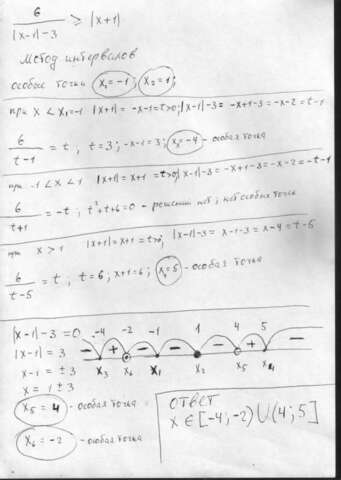 6
|x-1|-3 ≥ |x+1|
Метод интервалов
особые точки x₁=-1; x₂=1;
при x < x₁=-1 |x+1| = -x-1=t>0; |x-1|-3 = -x+1-3 = -x-2 = t-1
6/(t-1) = t; t=3; -x-1=3; x₃=-4 - особая точка
при -1<x<1 |x+1|=x+1 =t>0; |x-1|-3=-x+1-3=-x-2=-t-1
6/(t+1) = -t; t²+t+6=0 - решений нет; нет особых точек
при x>1 |x+1|=x+1=t>0; |x-1|-3 = x-1-3 = x-4 = t-5
6/(t-5) = t; t=6; x+1=6; x₄=5 - особая точка
|x-1|-3=0
|x-1|=3
x-1 = ±3
x = 1±3
x₅=4 - особая точка
x₆=-2 - особая точка
-4 -2 -1 1 4 5
- + - - + -
x₃ x₆ x₁ x₂ x₅ x₄
ОТВЕТ
x∈[-4;-2)∪(4;5]